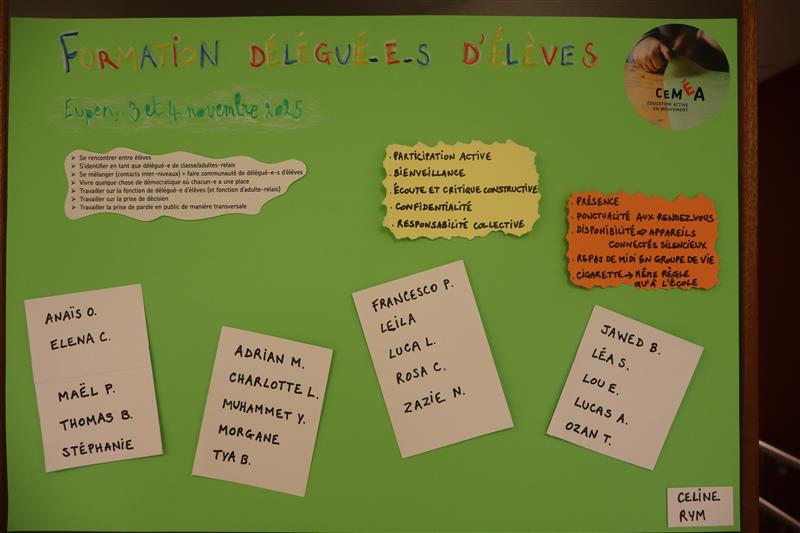 FORMATION DÉLÉGUÉ-E-S D'ÉLÈVES
Eupen, 3 et 4 novembre 2025
CEMÉA
ÉDUCATION ACTIVE
EN MOUVEMENT
➤ Se rencontrer entre élèves
➤ S'identifier en tant que délégué-e de classe/adultes-relais
➤ Se mélanger (contacts inter-niveaux) = faire communauté de délégué-e-s d'élèves
➤ Vivre quelque chose de démocratique où chacun-e a une place
➤ Travailler sur la fonction de délégué-e d'élèves (et fonction d'adulte-relais)
➤ Travailler sur la prise de décision
➤ Travailler la prise de parole en public de manière transversale
. PARTICIPATION ACTIVE
. BIENVEILLANCE
. ÉCOUTE ET CRITIQUE CONSTRUCTIVE
. CONFIDENTIALITÉ
. RESPONSABILITÉ COLLECTIVE
. PRÉSENCE
. PONCTUALITÉ AUX RENDEZ-VOUS
. DISPONIBILITÉ ⇒ APPAREILS
CONNECTÉS SILENCIEUX
. REPAS DE MIDI EN GROUPE DE VIE
. CIGARETTE → MÊME RÈGLE
QU'À L'ÉCOLE
ANAÏS O.
ELENA C.
MAËL P.
THOMAS B.
STÉPHANIE
ADRIAN M.
CHARLOTTE L.
MUHAMMET Y.
MORGANE
TYA B.
FRANCESCO P.
LEÏLA
LUCA L.
ROSA C.
ZAZIE N.
JAWED B.
LÉA S.
LOU E.
LUCAS A.
OZAN T.
CELINE
RYM